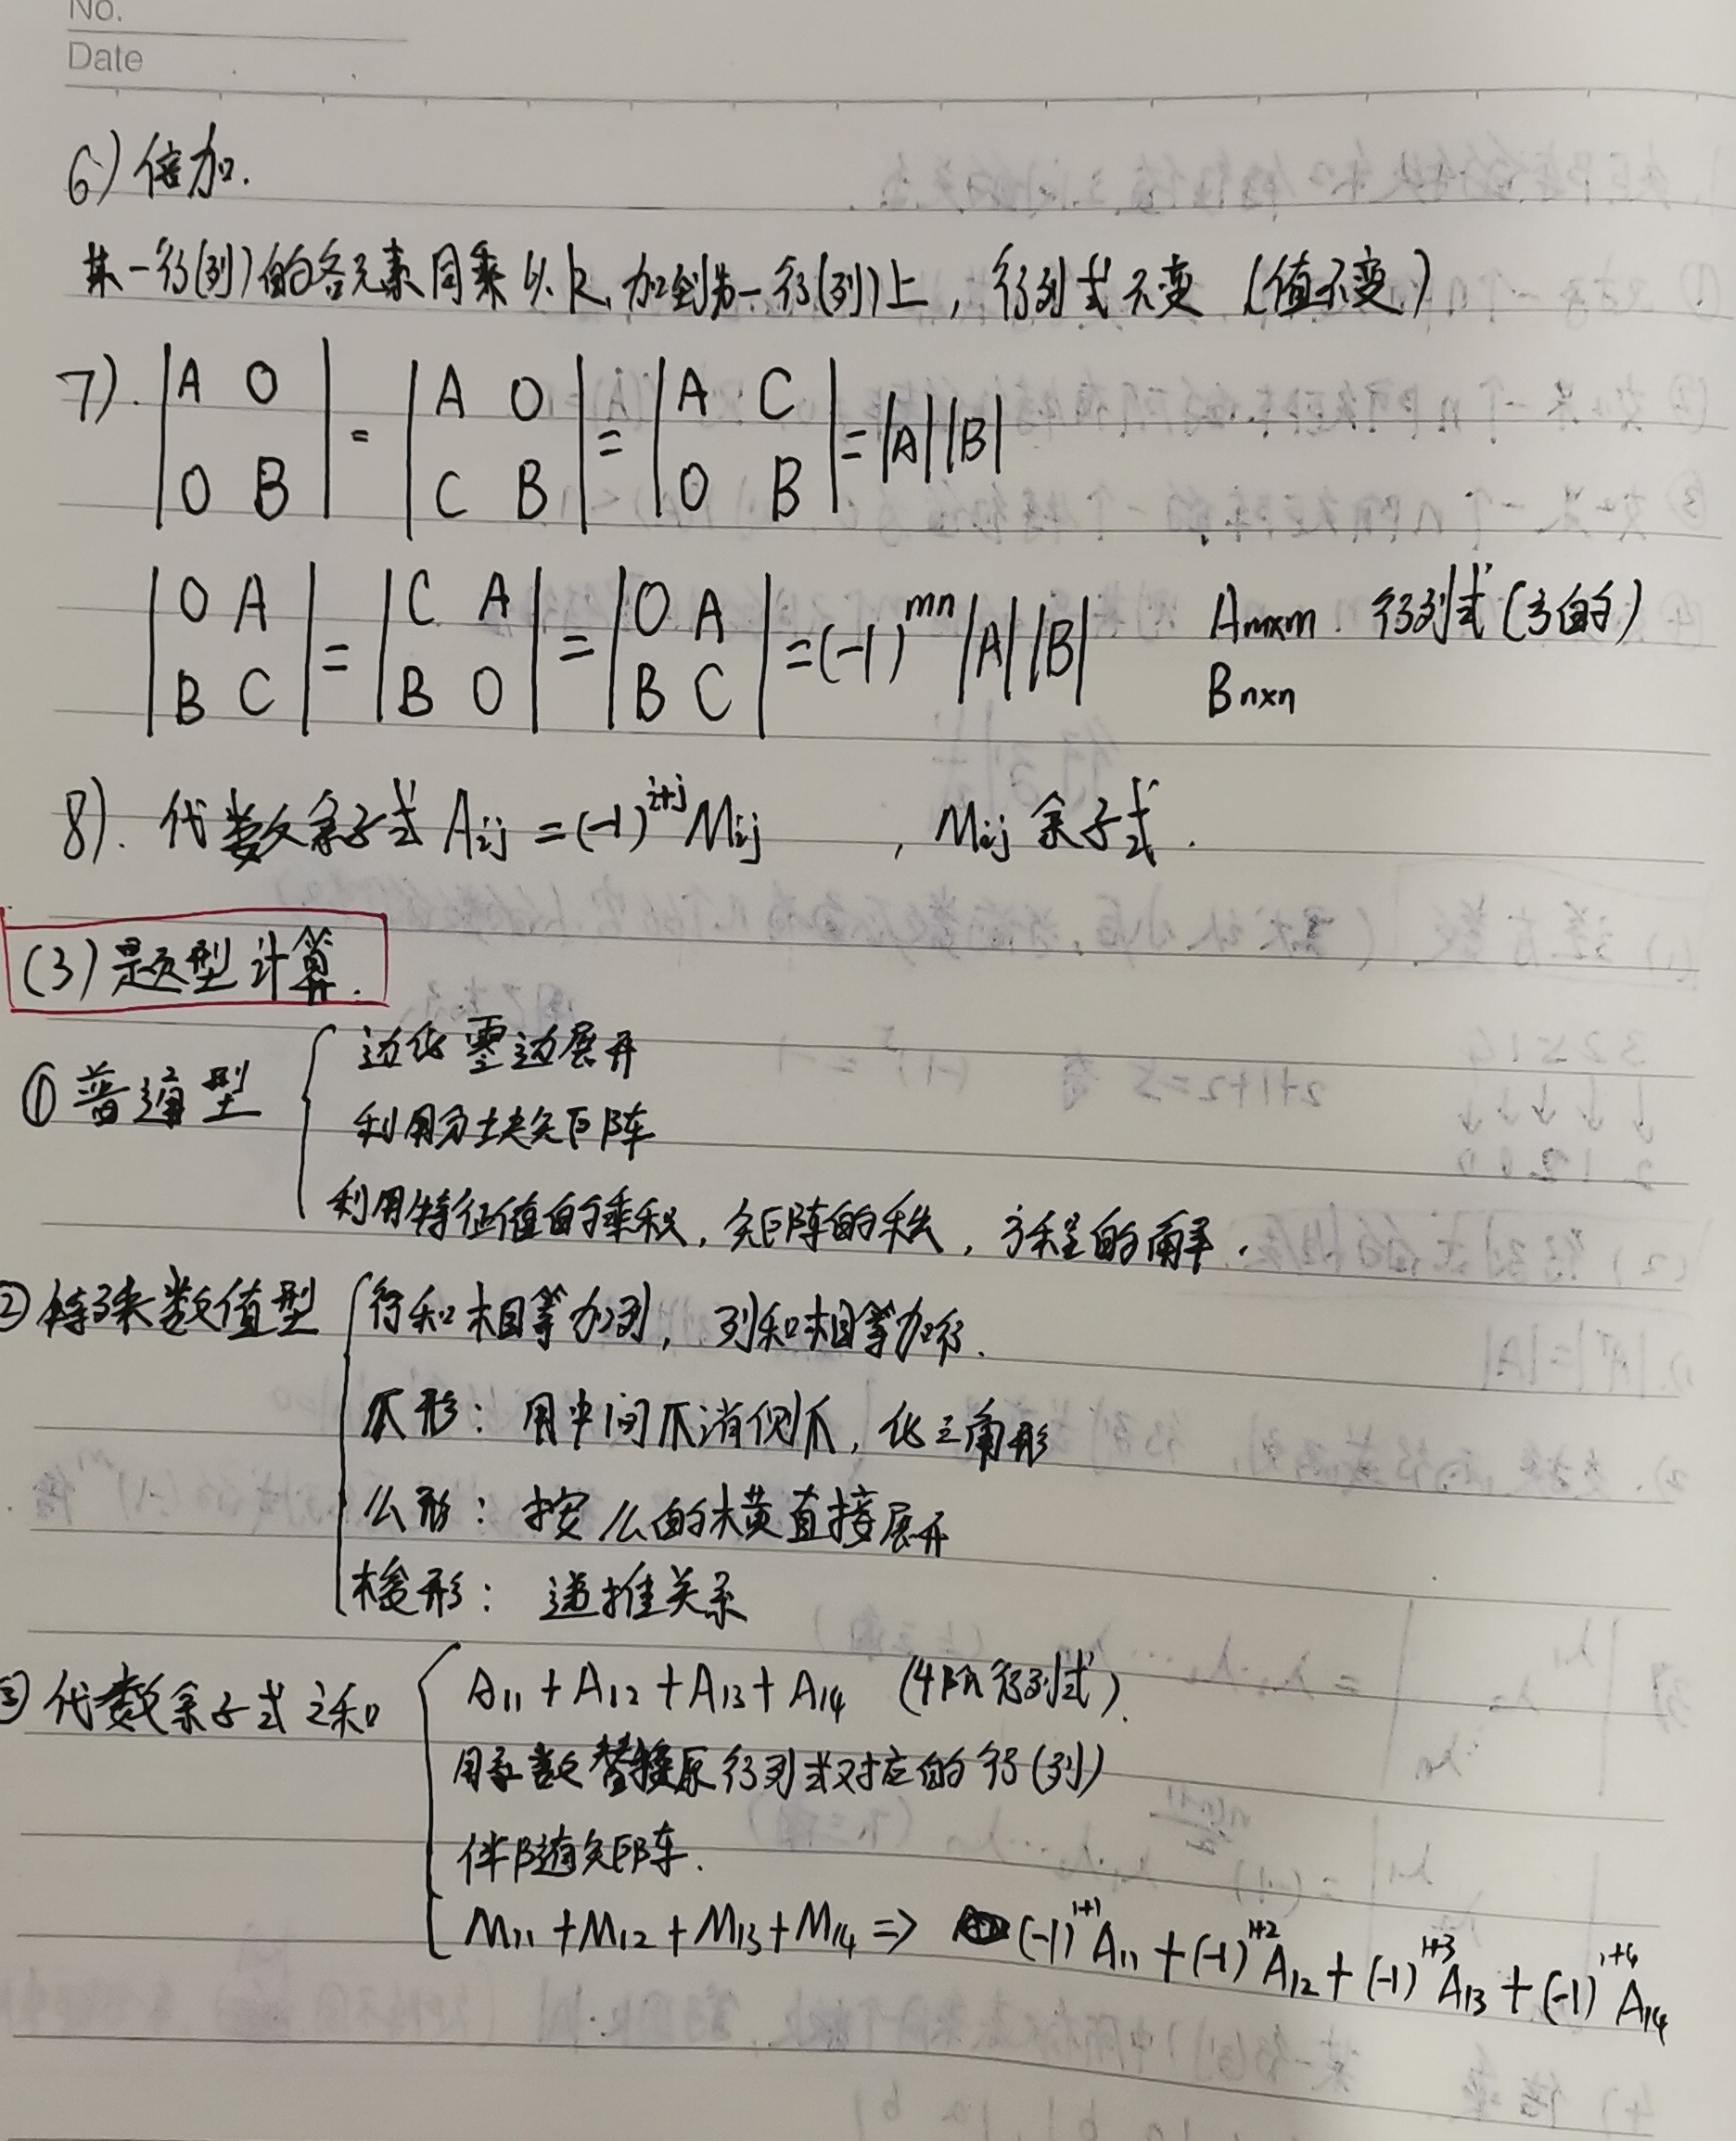 No.
Date
6) 倍加.
某一行(列)的各元素同乘以k,加到另一行(列)上,行列式不变 (值不变)
7). |A O; O B| = |A O; C B| = |A C; O B| = |A||B|
|O A; B C| = |C A; B O| = |O A; B C| = (-1)^{mn} |A||B| A_{m×m}. 行列式(方的)
B_{n×n}
8). 代数余子式 A_{ij} = (-1)^{i+j} M_{ij} , M_{ij} 余子式.
(3) 题型计算.
① 普通型
边化零边展开
利用分块矩阵
利用特征值的乘积, 矩阵的秩, 方程的解.
② 特殊数值型
行和相等加列, 列和相等加行.
爪形: 用中间爪消侧爪, 化三角形
么形: 按么的横直接展开
梭形: 递推关系
③ 代数余子式之和
A_{11} + A_{12} + A_{13} + A_{14} (4阶行列式).
用系数替换原行列式对应的行(列)
伴随矩阵.
M_{11} + M_{12} + M_{13} + M_{14} => (-1)^{1+1} A_{11} + (-1)^{1+2} A_{12} + (-1)^{1+3} A_{13} + (-1)^{1+4} A_{14}